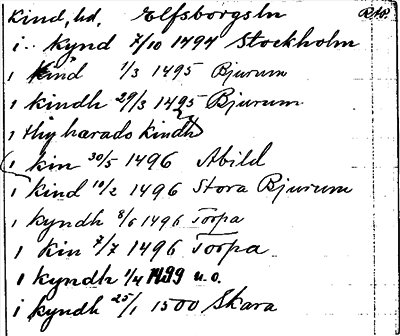 Kind, hd. Elfsborgsln RAP.
i.. Kynd 7/10 1494 Stockholm
i Kind 1/3 1495 Bjurum
i kindh 29/3 1495 Bjurum
i thy harads kindh
i kin 30/5 1496 Abild
i Kind 10/2 1496 Stora Bjurum
i kyndh 8/6 1496 Torpa
i Kin 7/7 1496 Torpa
i kyndh 1/4 1499 u.o.
i kyndh 25/1 1500 Skara